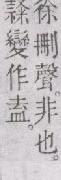 徐刪聲。非也。
隸變作盍。